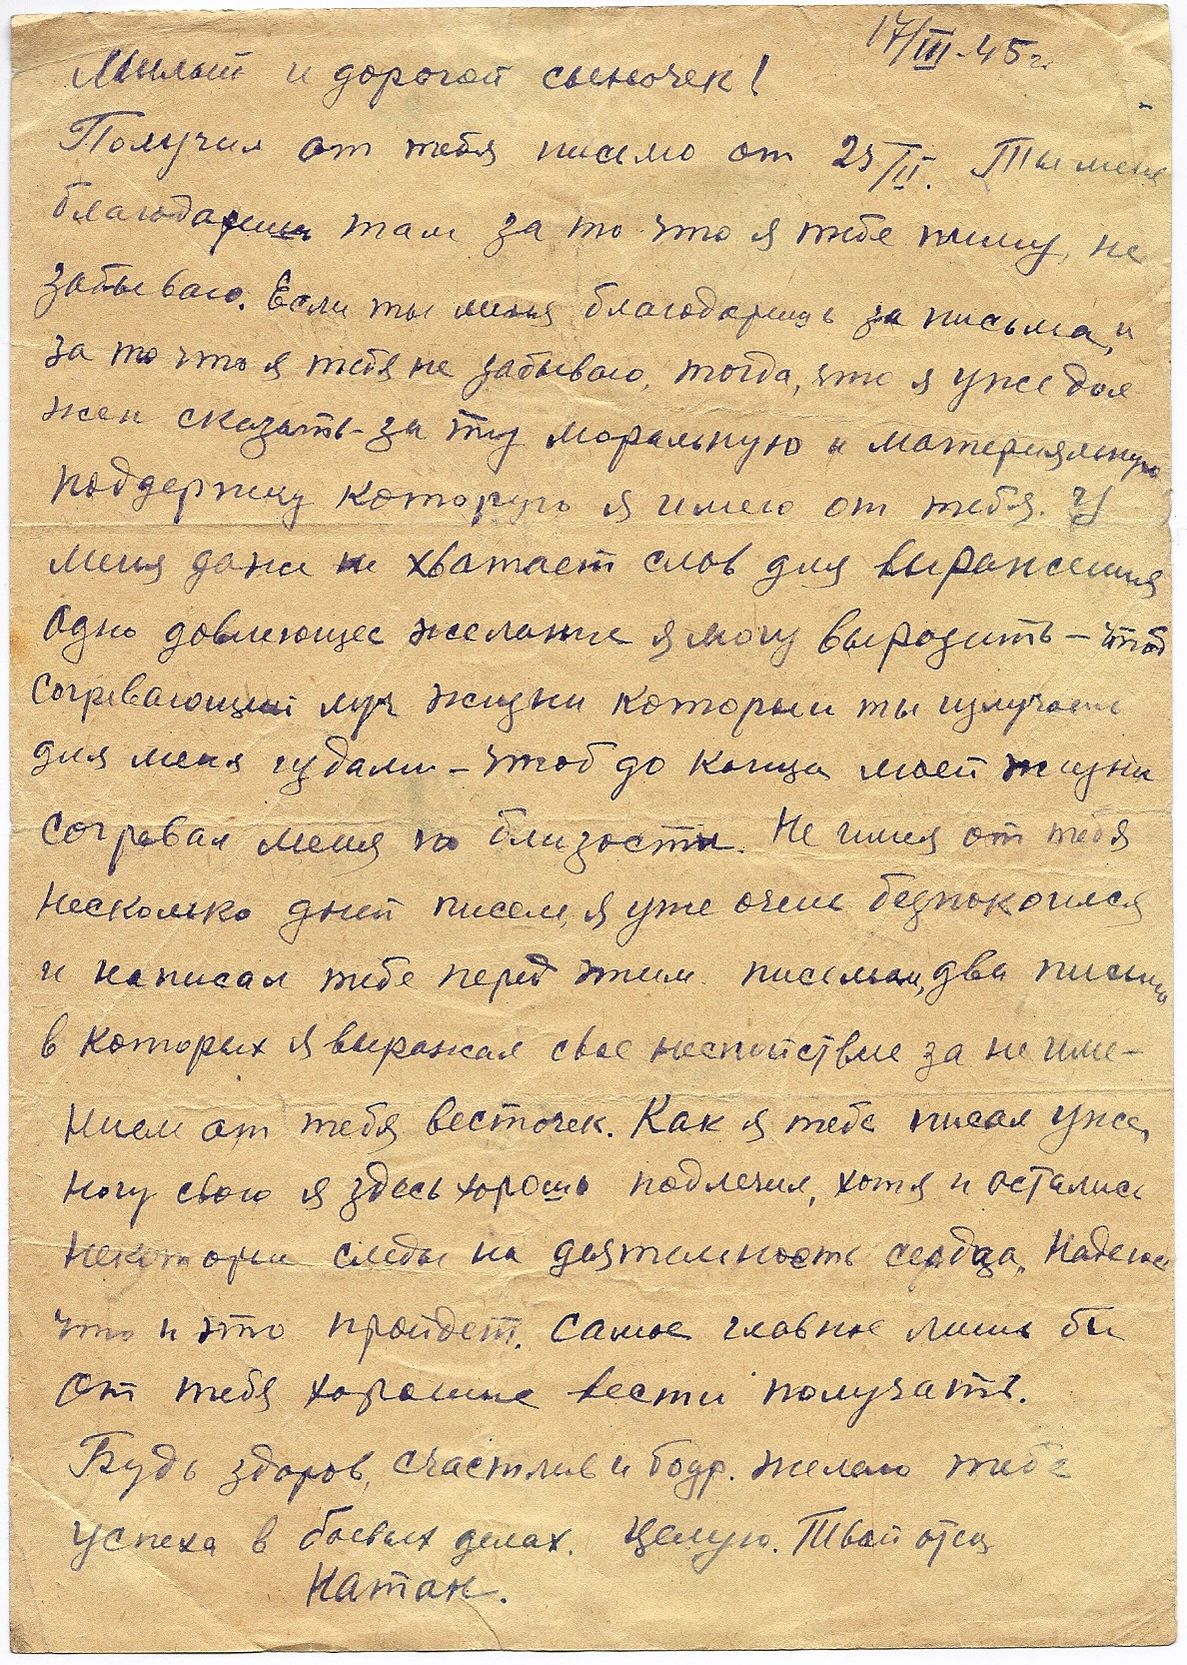 17/III-45 г.
Милый и дорогой сыночек!
Получил от тебя письмо от 25/II. Ты меня
благодаришь там за то что я тебе пишу, не
забываю. Если ты меня благодаришь за письма, и
за то что я тебя не забываю, тогда, что я уже дол
жен сказать - за ту моральную и материяльную
поддержку которую я имею от тебя. У
меня даже не хватает слов для выражения
Одно довлеющее желание я могу выразить - чтоб
согревающий луч жизни которым ты излучаешь
для меня издали - чтоб до конца моей жизни
согревал меня по близости. Не имея от тебя
несколько дней писем, я уже очень безпокоился
и написал тебе перед этим письмом, два письма
в которых я выражал свое неспокойствие за не име-
нием от тебя весточек. Как я тебе писал уже,
ногу свою я здесь хорошо подлечил, хотя и остались
некоторые следы на деятельность сердца. Надеюсь
что и это пройдет. Самое главное лишь бы
от тебя хорошие вести получать.
Будь здоров, счастлив и бодр. Желаю тебе
успеха в боевых делах. Целую. Твой отец
Натан.